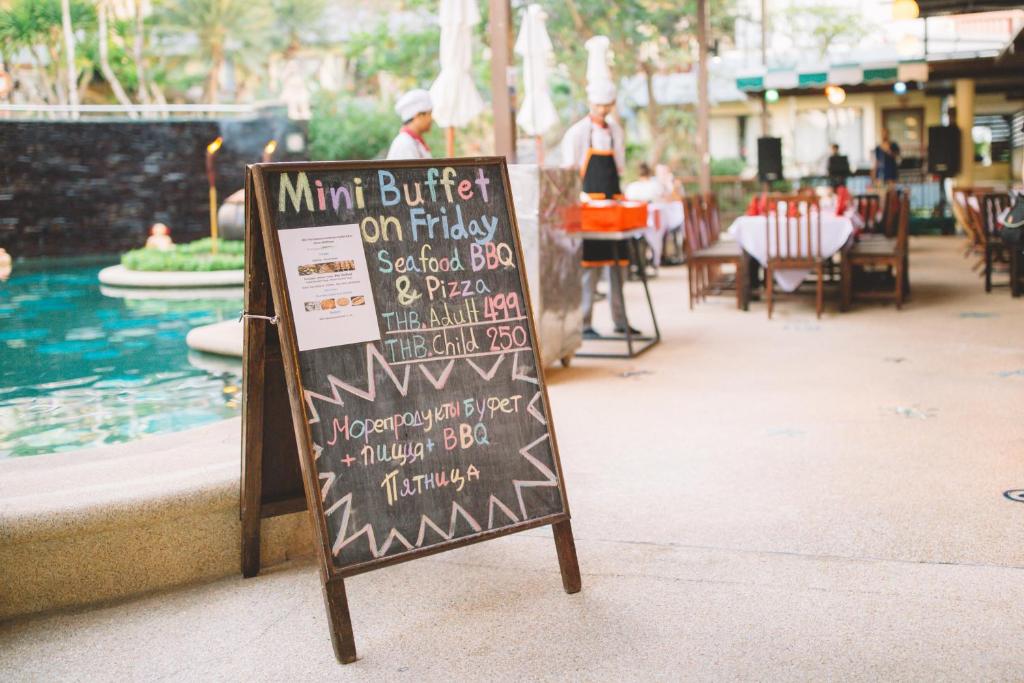 Mini Buffet
on Friday
Seafood BBQ
& Pizza
THB. Adult 499
THB. Child 250
Морепродукты Буфет
+ пицца + BBQ
Пятница